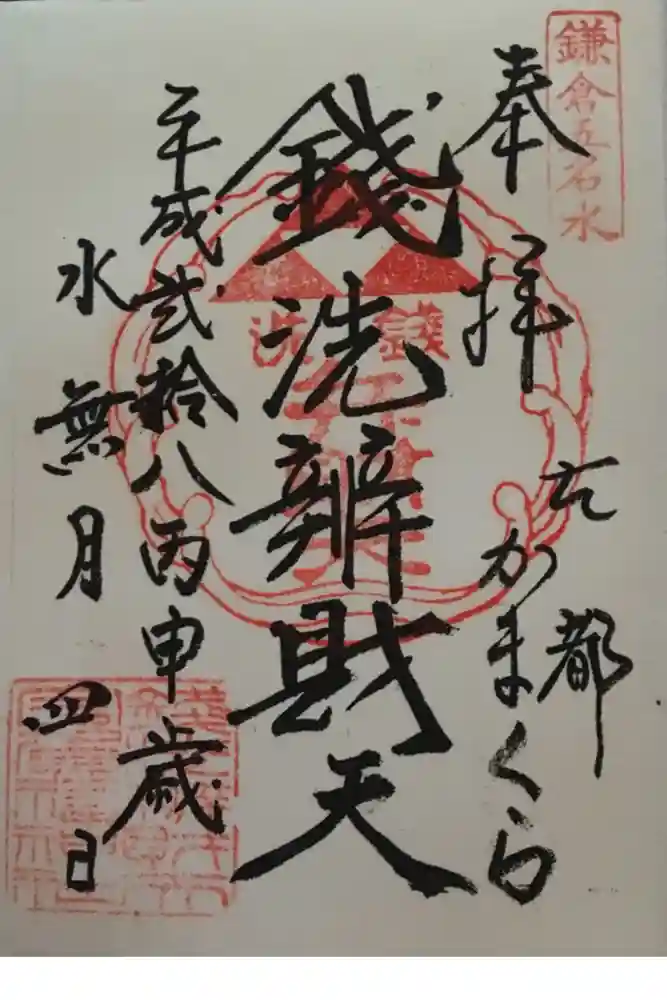 鎌倉五名水
奉拝
古都
かまくら
銭洗辨財天
銭洗
平成弐拾八丙申歳
水無月四日